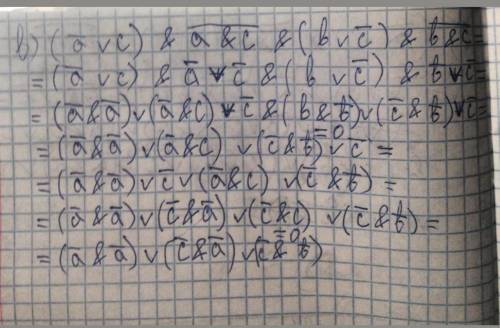 в) (a̅ ∨ c) & \overline{a & c} & (b ∨ c̅) & \overline{b & c} =
= (a̅ ∨ c) & a̅ ∨ c̅ & (b ∨ c̅) & b̅ ∨ c̅ =
= (a̅ & a̅) ∨ (a̅ & c) ∨ c̅ & (b & b̅) ∨ (c̅ & b̅) ∨ c̅ =
= (a̅ & a̅) ∨ (a̅ & c) ∨ (c̅ & b̅) ∨ c̅ =
= (a̅ & a̅) ∨ c̅ ∨ (a̅ & c) ∨ (c̅ & b̅) =
= (a̅ & a̅) ∨ (c̅ & a̅) ∨ (c̅ & c) ∨ (c̅ & b̅) =
= (a̅ & a̅) ∨ (c̅ & a̅) ∨ (c̅ & b̅)